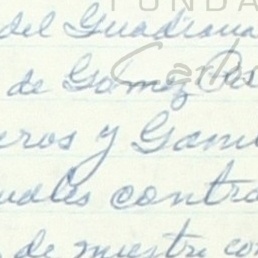 FUNDA
del Guadiana
de Gomez
eros y Gam
uales contra
de nuestro con